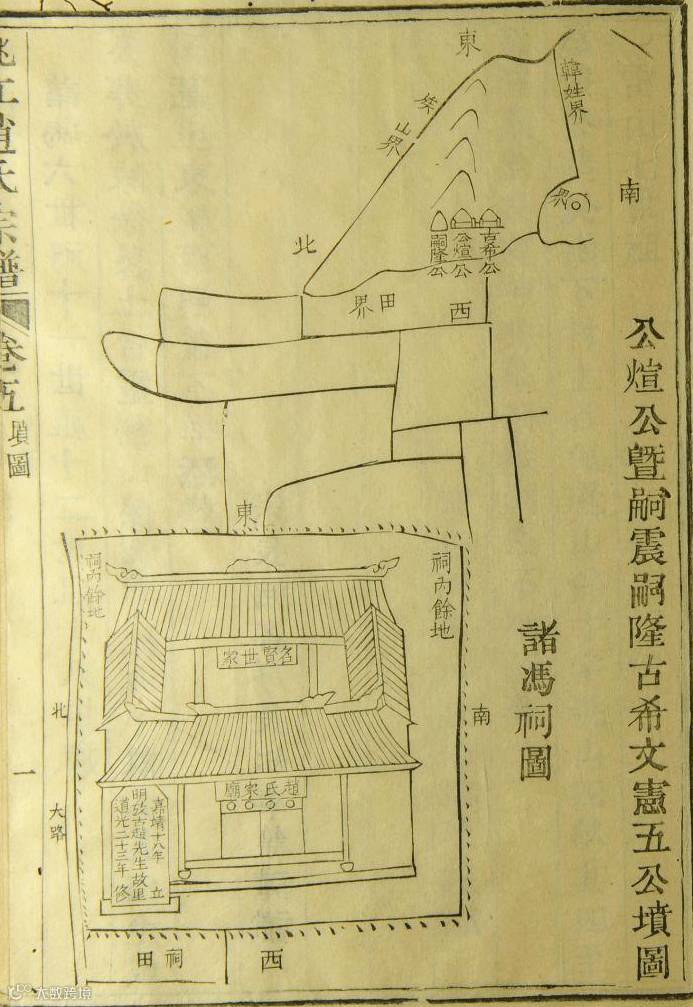 公煊公暨嗣震嗣隆古希文憲五公墳圖
東
韓姓界
山界
界
南
北
古希公
公煊公
嗣隆公
田界
西
諸馮祠圖
東
祠內餘地
祠內餘地
名賢世家
趙氏家廟
嘉靖十八年 立
明攷古趙先生故里
道光二十三年 修
南
北
大路
西
祠田
江趙氏宗譜
卷五
墳圖
一
大数跨境